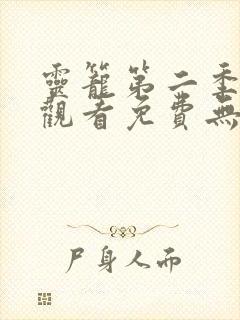 靈籠第二季
觀看免費無
尸身人而